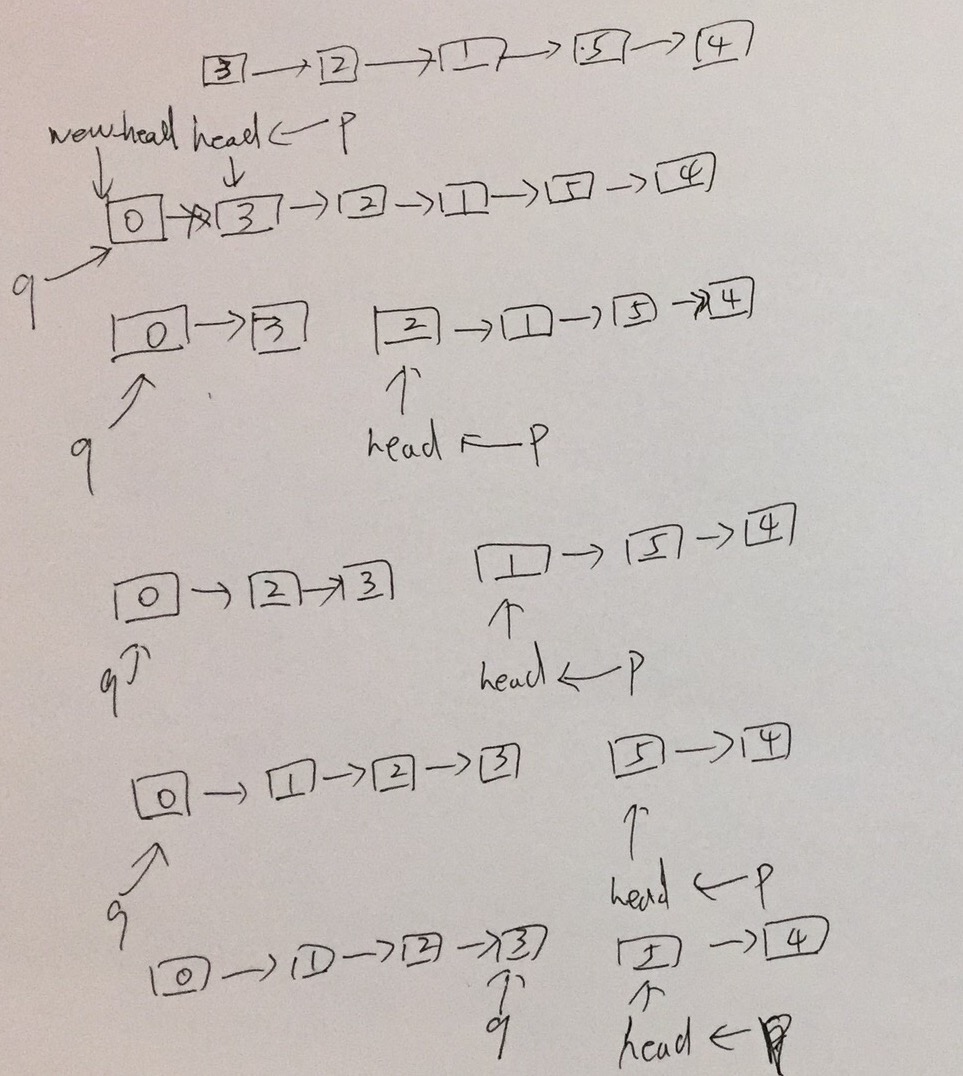 3 → 2 → 1 → 5 → 4
newhead head ← p
↓ ↓
0 → 3 → 2 → 1 → 5 → 4
q
0 → 3 2 → 1 → 5 → 4
q head ← p
0 → 2 → 3 1 → 5 → 4
q head ← p
0 → 1 → 2 → 3 5 → 4
q head ← p
0 → 1 → 2 → 3 5 → 4
q head ← p